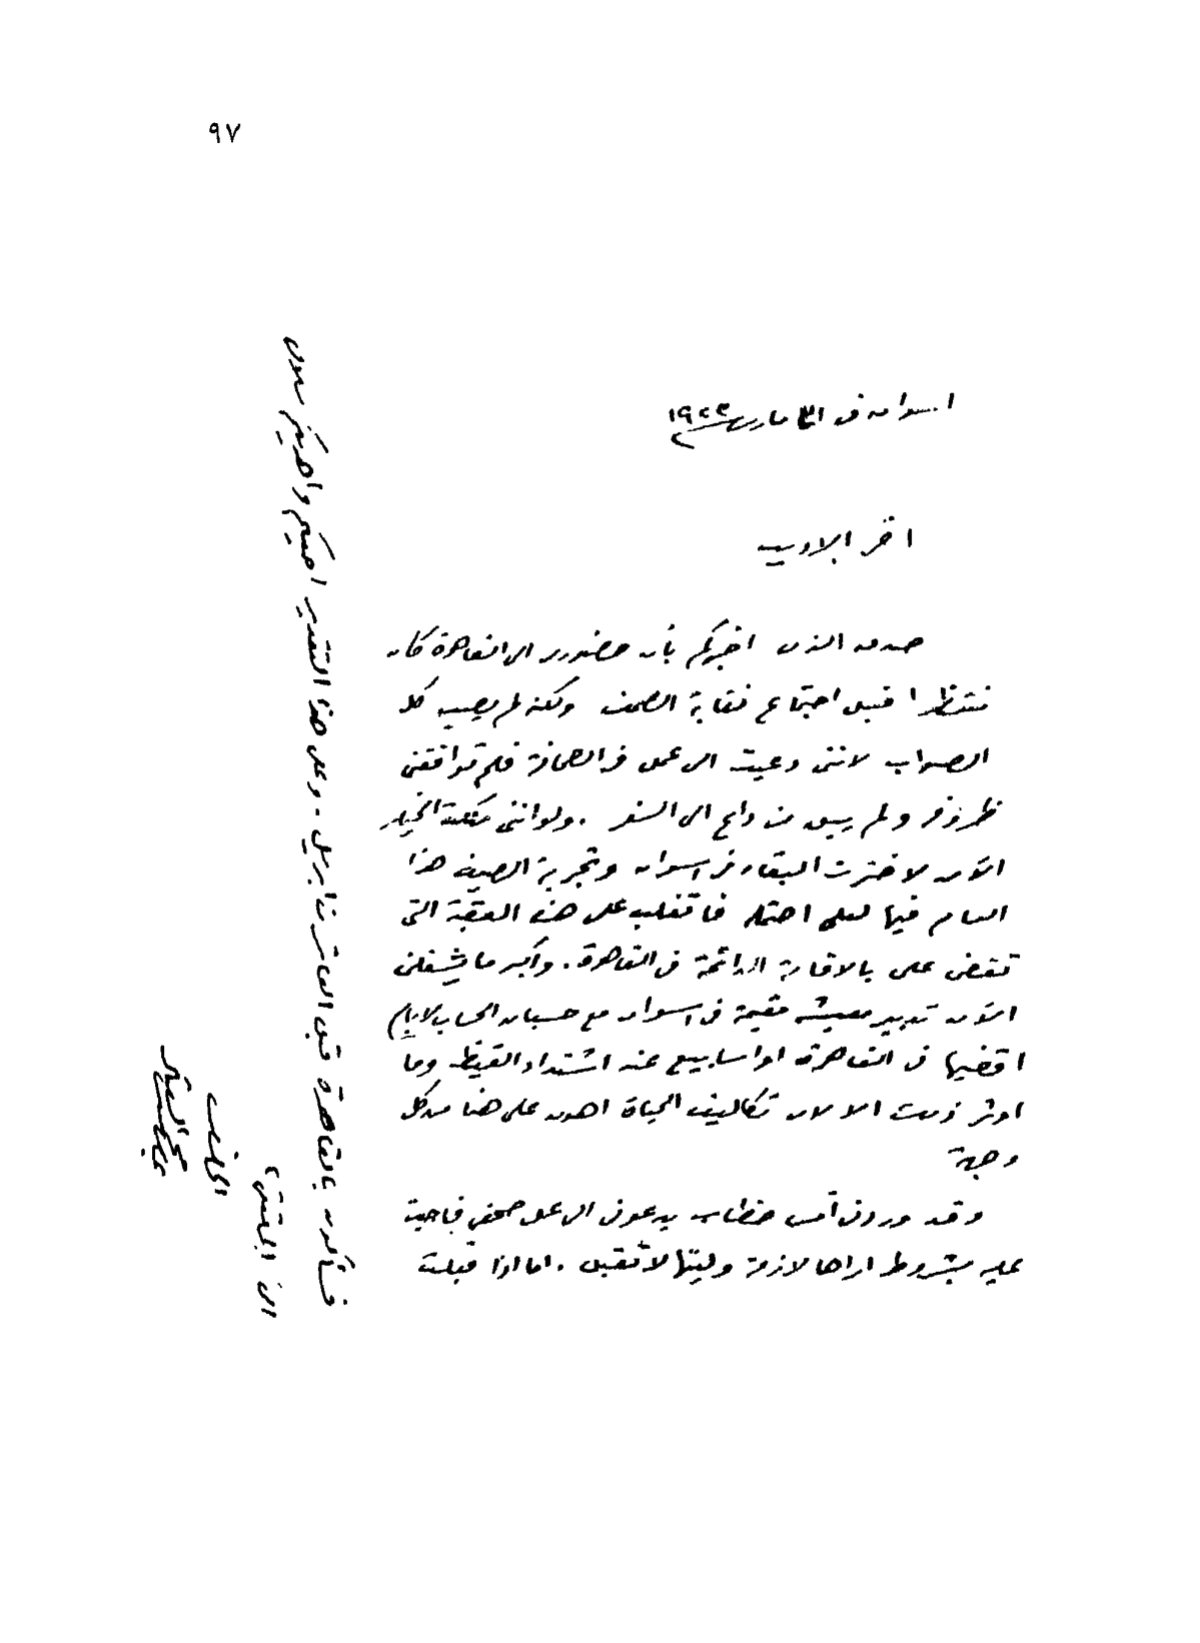 ٩٧
اسوان في ٣١ مارس سنة ١٩٢٣
اخي الاديب
صدق الذي اخبركم بأن حضوري الى القاهرة كان
منتظرا قبيل اجتماع نقابة الصحف ولكنه لم يصب كل
الصواب لانني دعيت الى عمل في الصحافة فلم توافقني
ظروفه ولم يبق من داع الى السفر . ولو انني ملكت الخيار
الآن لاخترت البقاء في اسوان وتجربة الصيف هذا
العام فيها لعلي احتمله فاتغلب على هذه العقبة التي
تقضي علي بالاقامة الدائمة في القاهرة . وأكبر ما يشغلني
الآن تدبير معيشة مقيمة في اسوان مع حسبان الحساب لايام
اقضيها في القاهرة او اسابيع عند اشتداد القيظ وما
اوثر ذلك الا لان تكاليف الحياة اهون علي هنا من كل
وجهة
وقد ورد لي أمس خطاب يدعوني الى عمل صحفي فاجبت
عليه بشروط اراها لازمة وليتها لا تقبل . اما اذا قبلت
فسأكون بالقاهرة قبل العاشر من ابريل - وعلى هذا التقدير احييكم واهديكم سلامي
الى الملتقى ،
المخلص
عباس محمود العقاد